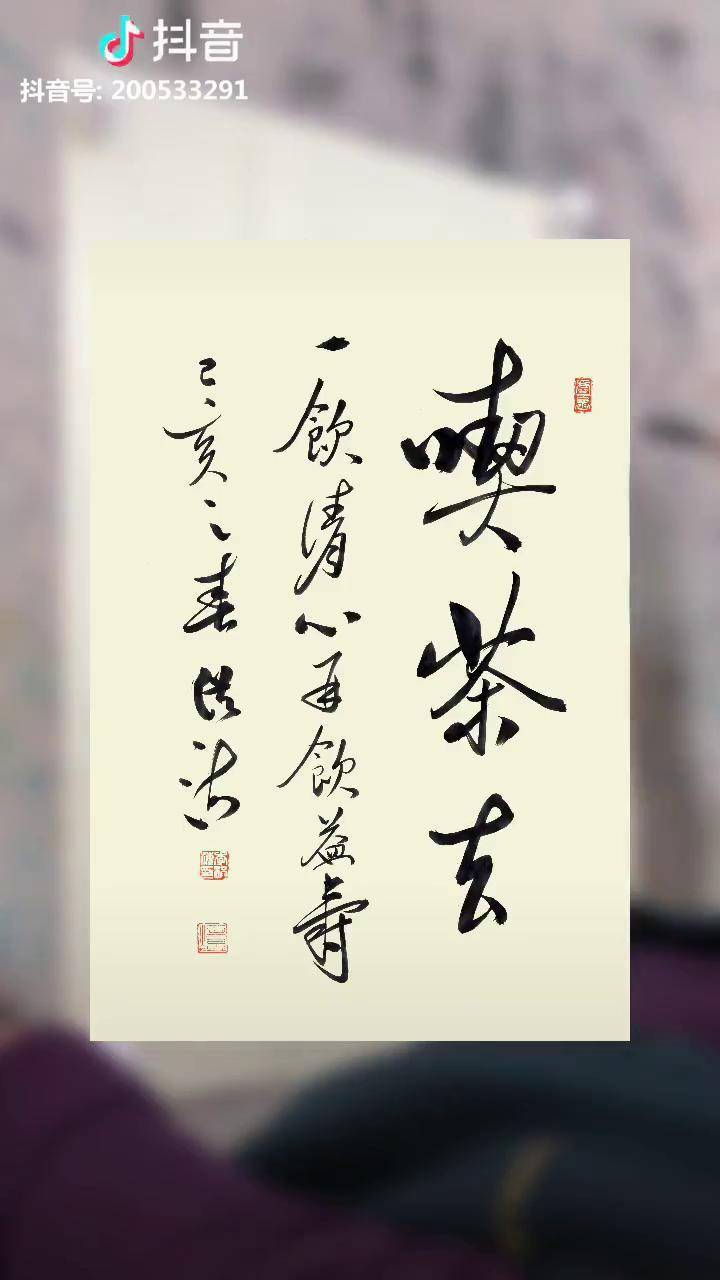 抖音
抖音号: 200533291
喫茶去
一飲清心再飲益壽
己亥之春